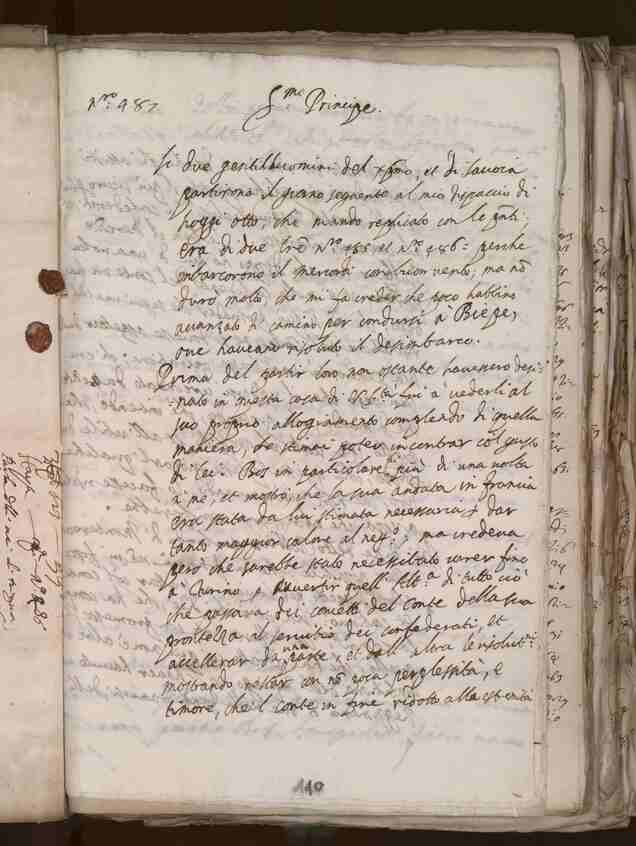 N.ro 487
Ser.mo Principe.
Li due gentilhuomini del Xpmo, et di Savoia
partirono il giorno seguente al mio dispaccio di
hoggi otto, che mando replicato con le pnti.
era di due l're N.ro 485 et N.ro 486= perche
imbarcorono il mercordi con buon vento, ma nõ
durò molto, che mi fa creder che poco habbino
avanzato di camino per condursi à Diepe,
ove haveano risoluto il desimbarco.
Prima del partir loro non ostante havessero desi-
nato in questa casa di V. Ser.tà fui à vederli al
suo proprio allogiamento complendo di quella
maniera, che stimai poter incontrar col gusto
di lei. Bos in particolare più di una volta
à me, et mostrò, che la sua andata in francia
era stata da lui stimata necessaria p dar
tanto maggior calore al neg.o; ma credeva
però che sarebbe stato necessitato correr fino
à Turino p avvertir quell'Alt.a di tutto ciò
che passava dei concetti del Conte della sua
prontezza al servitio dei confederati, et
accellerar da una parte, et dall'altra le risolut.ni
mostrando restar con nõ poca perplessità, e
timore, che l Conte in fine ridotto alla estremità
110